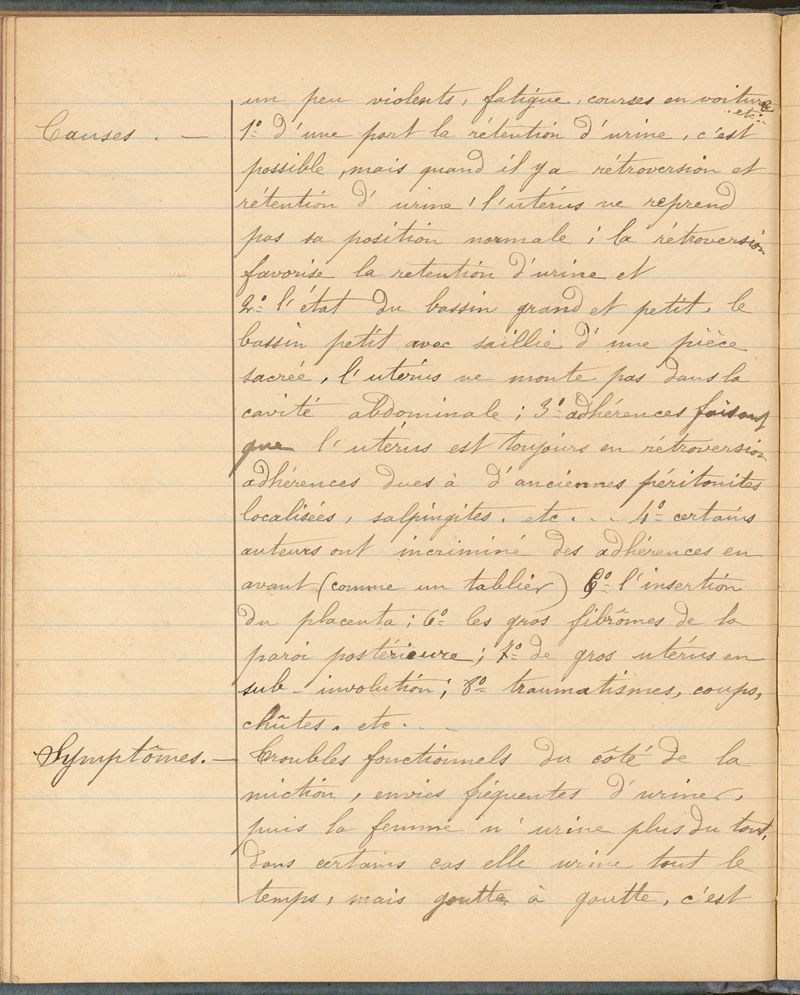 un peu violents, fatigue, courses en voiture
etc..
Causes. — 1º d'une part la rétention d'urine, c'est
possible, mais quand il y a rétroversion et
rétention d'urine, l'utérus ne reprend
pas sa position normale ; la rétroversion
favorise la retention d'urine et
2º l'état du bassin grand et petit, le
bassin petit avec saillie d'une pièce
sacrée, l'utérus ne monte pas dans la
cavité abdominale ; 3º adhérences faisant
que l'utérus est toujours en rétroversion
adhérences dues à d'anciennes péritonites
localisées, salpingites. etc... 4º certains
auteurs ont incriminé des adhérences en
avant (comme un tablier) 5º l'insertion
du placenta ; 6º les gros fibrômes de la
paroi postérieure ; 7º de gros utérus en
sub-involution ; 8º traumatismes, coups,
chûtes. etc...
Symptômes. — Troubles fonctionnels du côté de la
miction, envies fréquentes d'uriner,
puis la femme n'urine plus du tout,
dans certains cas elle urine tout le
temps, mais goutte à goutte, c'est